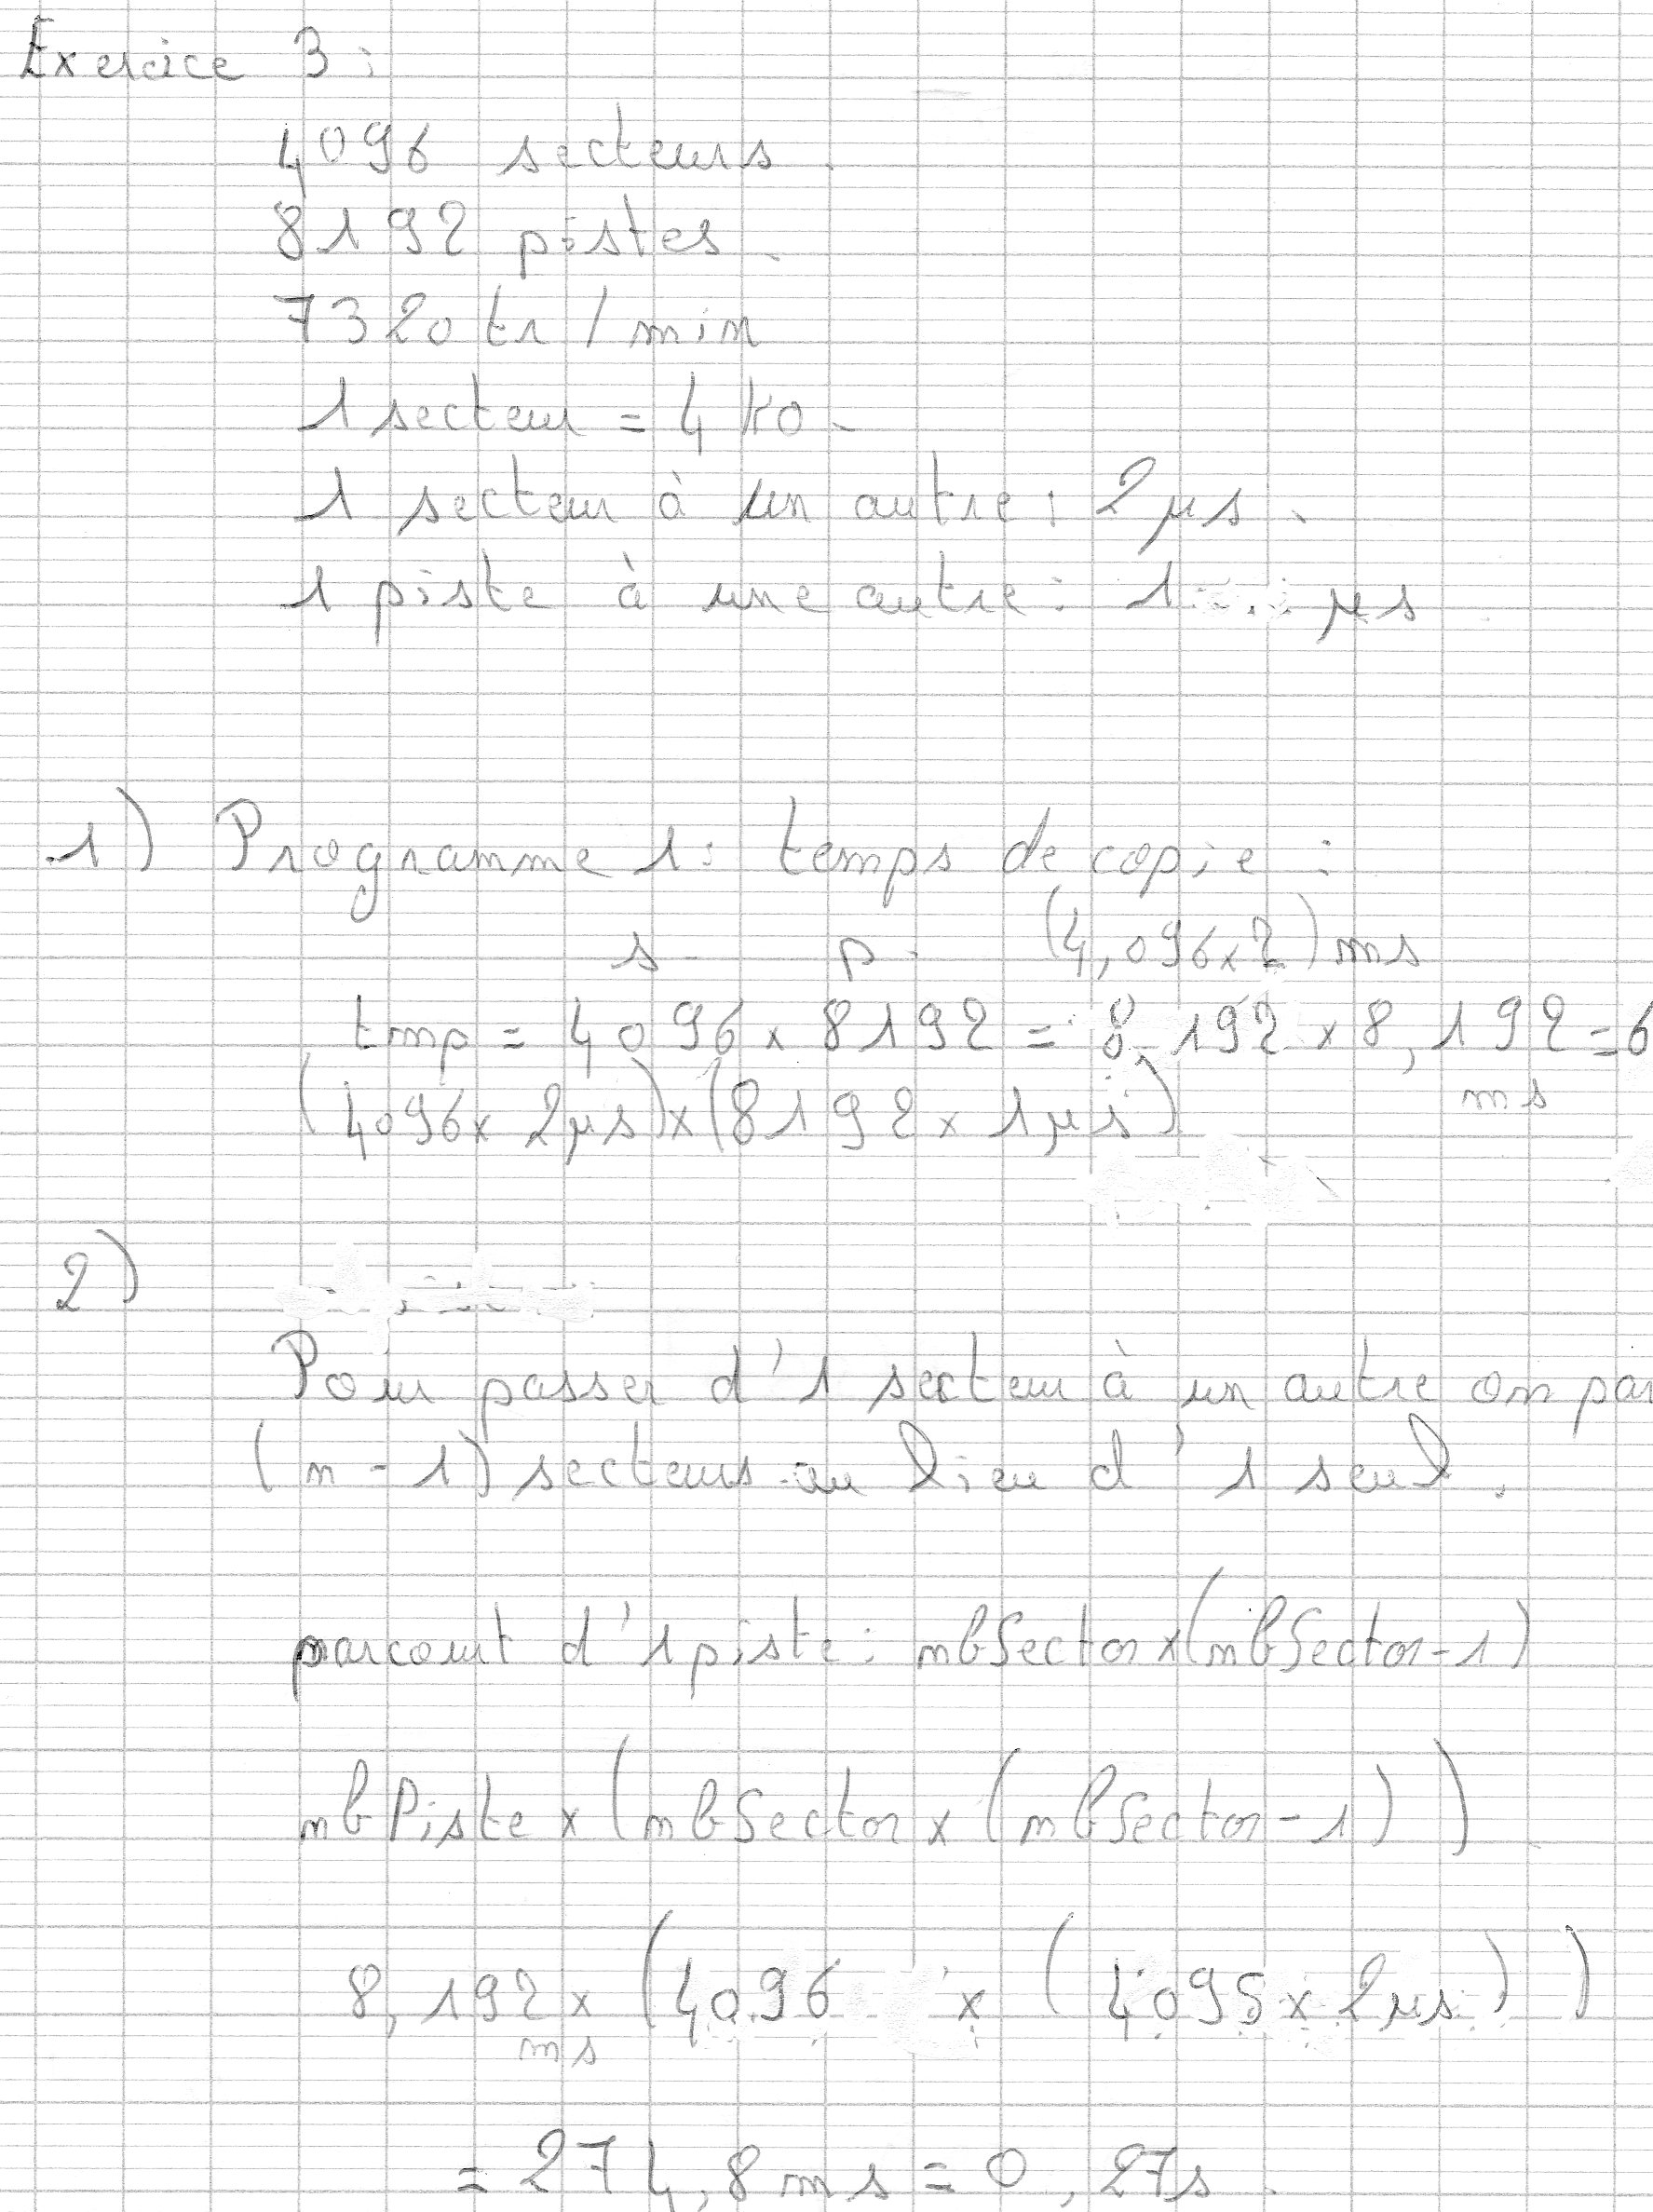 Exercice 3 :
4096 secteurs.
8192 pistes.
7320 tr / min
1 secteur = 4 ko.
1 secteur à un autre : 2 µs.
1 piste à une autre : 1 µs
1) Programme 1 : temps de copie :
s p. (4,096 x 2) ms
tmp = 4096 x 8192 = 8,192 x 8,192 = 6
ms
(4096 x 2µs) x (8192 x 1µs)
2)
Pour passer d'1 secteur à un autre on par
(n - 1) secteurs au lieu d'1 seul.
parcourt d'1 piste : nbSector x (nbSector - 1)
nbPiste x (nbSector x (nbSector - 1))
8,192 x (4096 x (4095 x 2µs))
ms
= 274,8 ms = 0,27s.